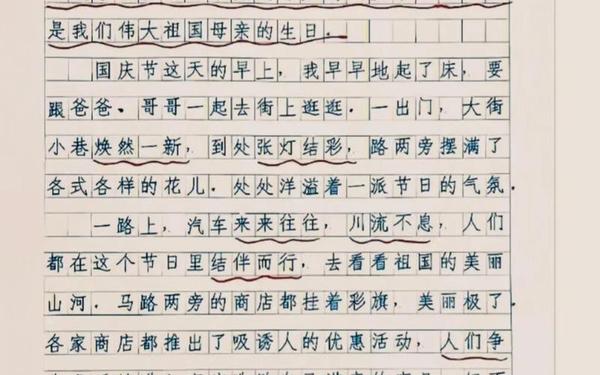 是我们伟大祖国母亲的生日.
国庆节这天的早上，我早早地起了床，要
跟爸爸.哥哥一起去街上逛逛.一出门，大街
小巷焕然一新，到处张灯结彩，路两旁摆满了
各式各样的花儿.处处洋溢着一派节日的气氛.
一路上，汽车来来往往，川流不息，人们
都在这个节日里结伴而行，去看看祖国的美丽
山河.马路两旁的商店都挂着彩旗，美丽极了.
各家商店都推出了吸诱人的优惠活动，人们争